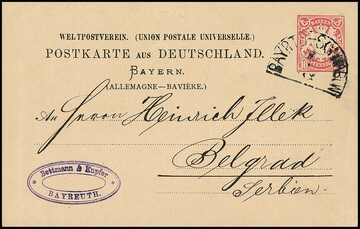 WELTPOSTVEREIN. (UNION POSTALE UNIVERSELLE.)
POSTKARTE AUS DEUTSCHLAND.
BAYERN.
(ALLEMAGNE-BAVIÈRE.)
BAYERN
10 PFENNIG 10
An Herrn Heinrich Illek
Belgrad
Serbien.
Bettmann & Kupfer
BAYREUTH.